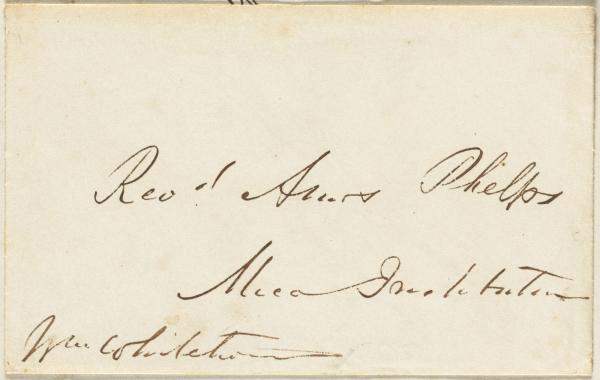 Revd. Amos Phelps
Mico Institution
Wm